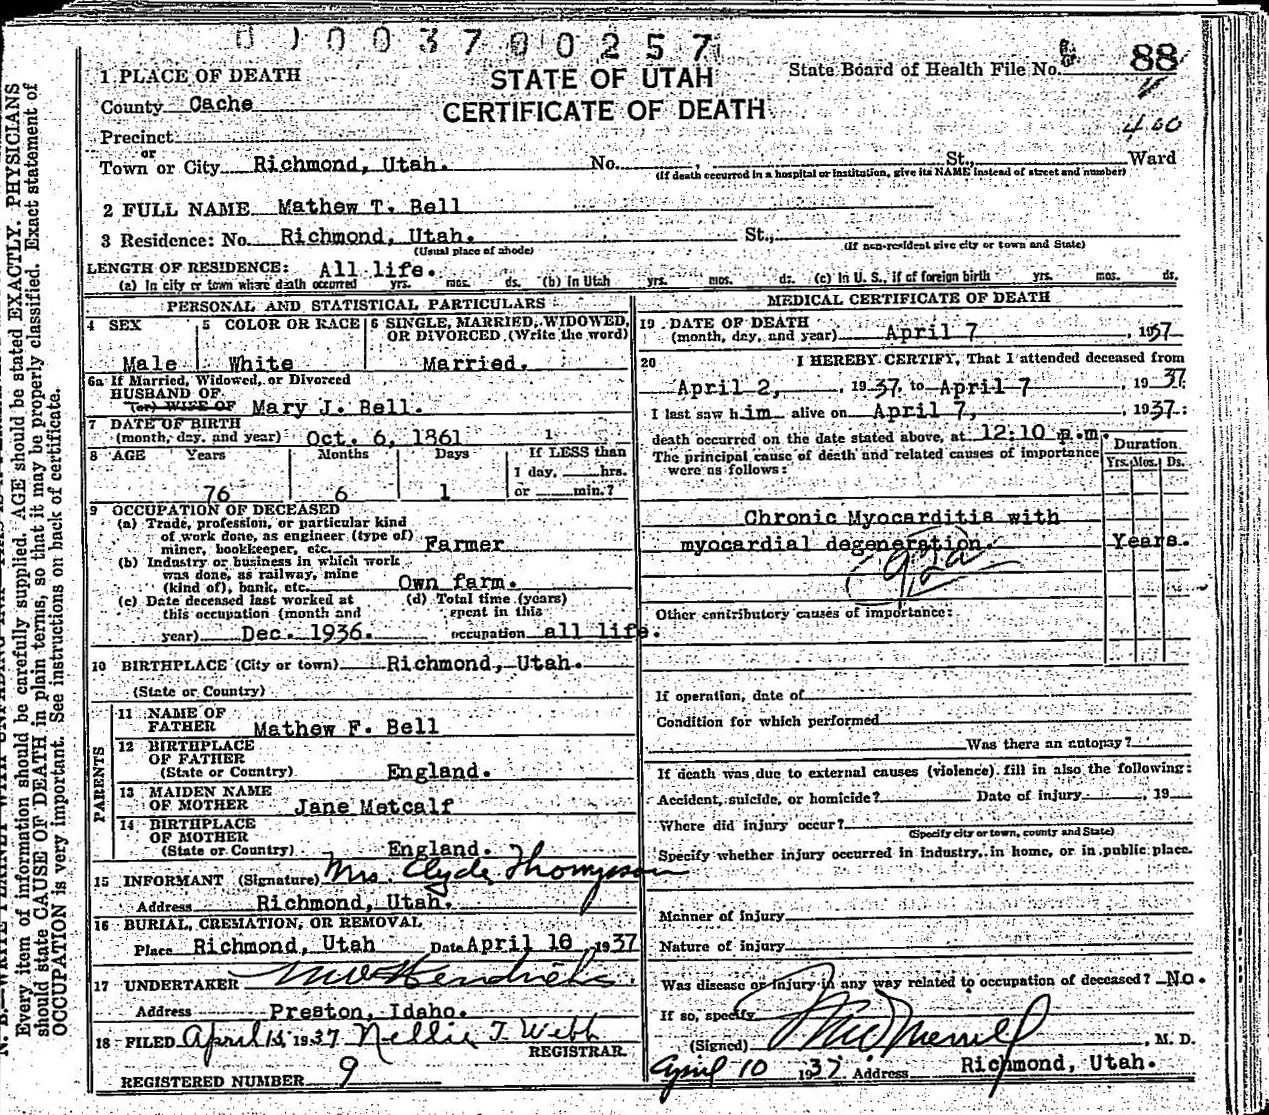 0 1 0 0 3 7 0 0 2 5 7
1 PLACE OF DEATH
STATE OF UTAH
CERTIFICATE OF DEATH
State Board of Health File No. 88
County Cache
Precinct
or
400
Town or City Richmond, Utah. No. , St., Ward
(If death occurred in a hospital or institution, give its NAME instead of street and number)
2 FULL NAME Mathew T. Bell
3 Residence: No. Richmond, Utah. St.,
(Usual place of abode) (If non-resident give city or town and State)
LENGTH OF RESIDENCE: All life.
(a) In city or town where death occurred yrs. mos. ds. (b) In Utah yrs. mos. ds. (c) In U. S., if of foreign birth yrs. mos. ds.
PERSONAL AND STATISTICAL PARTICULARS
4 SEX
Male
5 COLOR OR RACE
White
6 SINGLE, MARRIED, WIDOWED,
OR DIVORCED (Write the word)
Married.
6a If Married, Widowed, or Divorced
HUSBAND OF
(or) WIFE OF Mary J. Bell.
7 DATE OF BIRTH
(month, day, and year) Oct. 6, 1861
8 AGE Years Months Days If LESS than
1 day, hrs.
76 6 1 or min.?
9 OCCUPATION OF DECEASED
(a) Trade, profession, or particular kind
of work done, as engineer (type of)
miner, bookkeeper, etc. Farmer
(b) Industry or business in which work
was done, as railway, mine
(kind of), bank, etc. Own farm.
(c) Date deceased last worked at
this occupation (month and
year) Dec. 1936.
(d) Total time (years)
spent in this
occupation all life.
10 BIRTHPLACE (City or town) Richmond, Utah.
(State or Country)
PARENTS
11 NAME OF
FATHER Mathew F. Bell
12 BIRTHPLACE
OF FATHER
(State or Country) England.
13 MAIDEN NAME
OF MOTHER Jane Metcalf
14 BIRTHPLACE
OF MOTHER
(State or Country) England.
15 INFORMANT (Signature) Mrs. Clyde Thompson
Address Richmond, Utah.
16 BURIAL, CREMATION, OR REMOVAL
Place Richmond, Utah Date April 10 , 1937
17 UNDERTAKER Hendricks
Address Preston, Idaho.
18 FILED April 15, 1937 Nellie T. Webb
REGISTRAR.
REGISTERED NUMBER 9
MEDICAL CERTIFICATE OF DEATH
19 DATE OF DEATH
(month, day, and year) April 7 , 1937
20 I HEREBY CERTIFY, That I attended deceased from
April 2, , 1937, to April 7 , 1937
I last saw him alive on April 7, , 1937:
death occurred on the date stated above, at 12:10 p.m.
The principal cause of death and related causes of importance
were as follows:
Duration
Yrs. Mos. Ds.
Chronic Myocarditis with
myocardial degeneration. Years.
Other contributory causes of importance:
If operation, date of
Condition for which performed
Was there an autopsy?
If death was due to external causes (violence) fill in also the following:
Accident, suicide, or homicide? Date of injury , 19
Where did injury occur?
(Specify city or town, county and State)
Specify whether injury occurred in industry, in home, or in public place.
Manner of injury
Nature of injury
Was disease or injury in any way related to occupation of deceased? No.
If so, specify
(Signed) Merrill , M. D.
April 10 1937 Address Richmond, Utah.
Every item of information should be carefully supplied. AGE should be stated EXACTLY. PHYSICIANS
should state CAUSE OF DEATH in plain terms, so that it may be properly classified. Exact statement of
OCCUPATION is very important. See instructions on back of certificate.